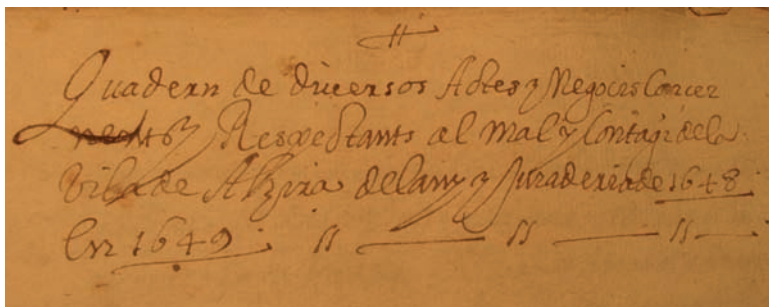 Quadern de diversos Actes y Negocis Concer
nents y Respectants al Mal y Contagi de la
Vila de Alzira del any y Juraderia de 1648
En 1649